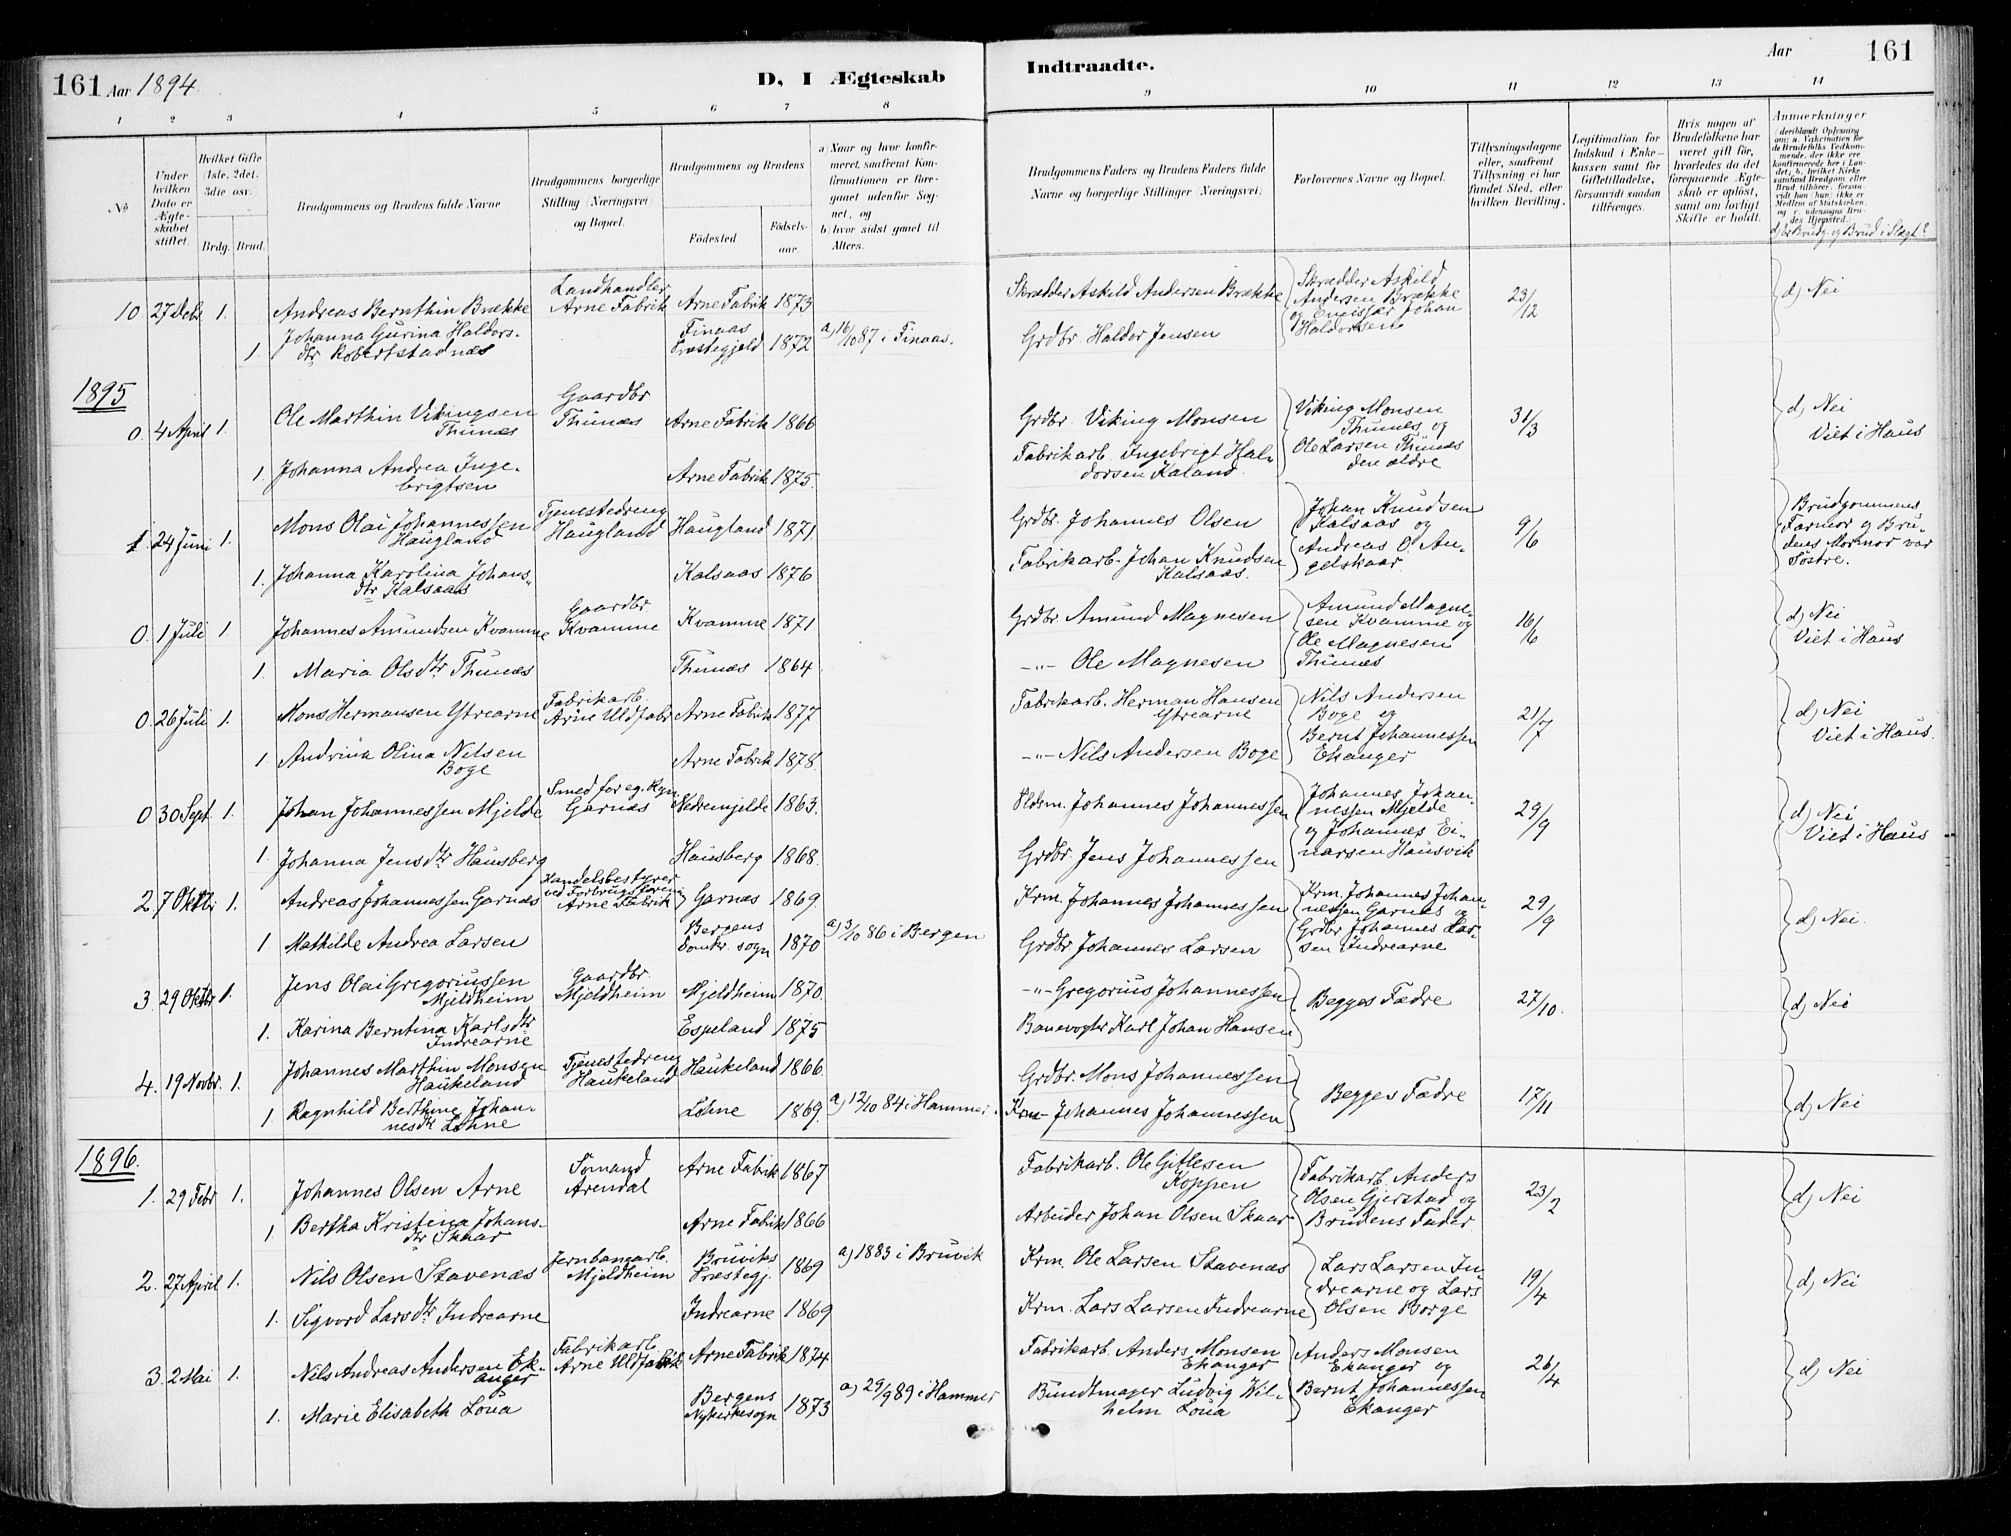 161 Aar 1894.
D, I Ægteskab
Indtraadte.
Aar 161
1 2 3 4 5 6 7 8 9 10 11 12 13 14
No
Under hvilken Dato er Ægteskabet stiftet.
Hvilket Gifte 1ste, 2det, 3die osv.
Brdg. Brud.
Brudgommens og Brudens fulde Navne
Brudgommens borgerlige Stilling (Næringsvei) og Bopæl.
Brudgommens og Brudens
Fødested.
Fødsels-aar.
a) Naar og hvor konfirmeret, saafremt Konfirmationen er foregaaet udenfor Sognet, og
b) hvor sidst gaaet til Alters.
Brudgommens Faders og Brudens Faders fulde Navne og borgerlige Stillinger (Næringsvei)
Forlovernes Navne og Bopæl.
Tillysningsdagene eller, saafremt Tillysning ei har fundet Sted, efter hvilken Bevilling.
Legitimation for Indskud i Enkekassen samt for Giftetilladelse, forsaavidt saadan tiltrænges.
Hvis nogen af Brudefolkene har været gift før, hvorledes da det foregaaende Ægteskab er opløst, samt om lovligt Skifte er holdt.
Anmærkninger
(deriblandt Oplysning om: a. Vakcination for de Brudefolks Vedkommende, der ikke ere konfirmerede her i Landet; b. hvilket Kirkesamfund Brudgom eller Brud tilhører, forsaavidt han (hun) ikke er Medlem af Statskirken, og c. udensogns Brudes Hjemsted.
d) Er Brudg. og Brud i Slægt?
10 27 Debr 1. Andreas Bernthin Brække Landhandler Arne Fabrik Arne Fabrik 1873 Skrædder Askild Andersen Brække Skrædder Askild Andersen Brække og Johan Haldorsen 23/12 d) Nei
1 Johanna Gurina Haldorsdtr Robertstadnæs Finaas Præstegjeld 1872 a) 16/10 87 i Finaas. Grdbr. Haldor Jensen
1895
0. 4 April 1. Ole Marthin Vikingsen Thunæs Gaardbr Thunæs Arne Fabrik 1866 Grdbr. Viking Monsen Viking Monsen Thunæs og Ole Larsen Thunæs den ældre 31/3 d) Nei Viet i Haus
1. Johanna Andrea Ingebrigtsen Arne Fabrik 1875. Fabrikarb. Ingebrigt Haldorsen Kaland.
1. 24 Juni 1. Mons Olai Johannessen Haugland Tjenestedreng Haugland Haugland 1871. Grdbr. Johannes Olsen Johan Knudsen Kalsaas og Andreas O. Angelskaar 9/6 Brudgommens Farmor og Brudens Mormor var Søstre.
1. Johanna Karolina Johansdtr Kalsaas Kalsaas 1876 Fabrikarb. Johan Knudsen Kalsaas.
0. 1 Juli 1 Johannes Amundsen Kvamme Gaardbr. Kvamme Kvamme 1871 Grdbr Amund Magnesen Amund Magnesen Kvamme og Ole Magnesen Thunæs 16/6 d) Nei Viet i Haus
1. Maria Olsdtr Thunæs Thunæs 1864 -"- Ole Magnesen
0. 26 Juli 1. Mons Hermansen Ytrearne Fabrikarb. Arne Uldfabr. Arne Fabrik 1877 Fabrikarb. Herman Hansen Ytrearne Nils Andersen Boge og Bernt Johannessen Ekanger 21/7 d) Nei Viet i Haus.
1. Andrina Olina Nilsen Boge Arne Fabrik 1878. -"- Nils Andersen Boge
0 30 Sept. 1. Johan Johannessen Mjelde Smed for eg. Rgn. Garnæs Nedremjelde 1863. Johannes Johannessen Johannes Johannessen Mjelde og Johannes Einarsen Hausvik 29/9 d) Nei Viet i Haus
1. Johanna Jensdtr Hausberg Hausberg 1868. Grdbr. Jens Johannessen
2. 7 Oktbr 1. Andreas Johannessen Garnæs Handelsbestyrer ved Forbrugsforen. Arne Fabrik Garnæs 1869. Krm. Johannes Johannessen Krm. Johannes Johannessen Garnæs og Grdbr Johannes Larsen Indrearne 29/9 d) Nei.
1. Mathilde Andrea Larsen Bergens Domk. sogn 1870 a) 3/10 86 i Bergen Grdbr Johannes Larsen
3. 29 Oktbr 1. Jens Olai Gregoriussen Mjeldheim Gaardbr. Mjeldheim Mjeldheim 1870. -"- Gregorius Johannessen Begges Fædre 27/10. d) Nei
1. Karina Berntina Karlsdtr Indrearne Espeland 1875 Banevogter Karl Johan Hansen
4. 19 Novbr. 1. Johannes Marthin Monsen Haukeland Tjenestedreng Haukeland Haukeland 1866. Grdbr. Mons Johannessen Begges Fædre 17/11 d) Nei
1. Ragnhild Berthine Johannesdtr Lohne Lohne 1869. a) 12/10 84 i Hammer. Krm- Johannes Johannessen
1896.
1. 29 Febr 1. Johannes Olsen Arne Sømand Arendal Arne Fabrik 1867 Fabrikarb. Ole Gitlesen Koppen Fabrikarb. Anders Olsen Gjerstad og Brudens Fader 23/2 d) Nei
1 Bertha Kristina Johansdtr Skaar Arne Fabrik 1866 Arbeider Johan Olsen Skaar
2. 27 April 1. Nils Olsen Stavenæs Jernbanearb. Mjeldheim Bruviks Præstegj. 1869 a) 1883 i Bruvik Krm. Ole Larsen Stavenæs Lars Larsen Indrearne og Lars Olsen Borge 19/4 d) Nei
1. Sigvord Larsdtr Indrearne Indrearne 1869 Krm. Lars Larsen Indrearne
3. 2 Mai 1. Nils Andreas Andersen Ekanger Fabrikarb. Arne Uldfabrik Arne Fabrik 1874 Fabrikarb. Anders Monsen Ekanger Anders Monsen Ekanger og Bernt Johannessen Ekanger 26/4 d) Nei
1. Marie Elisabeth Loua Bergens Nykirkesogn 1873 a) 29/9 89 i Hammer Bundtmager Ludvig Wilhelm Loua